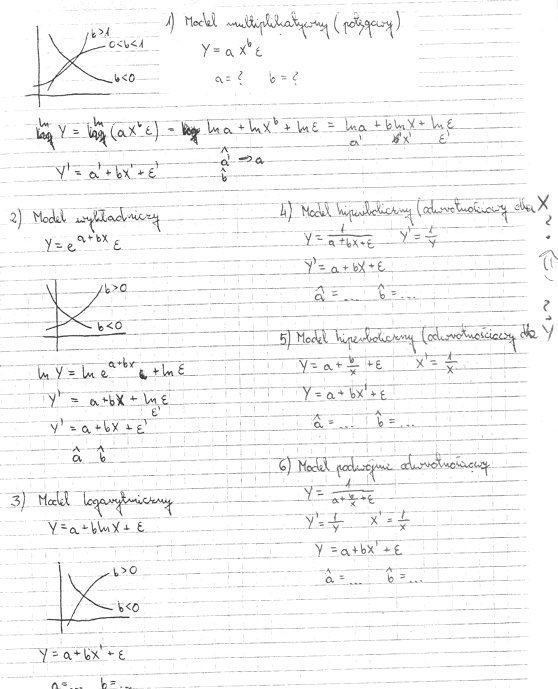 1) Model multiplikatywny (potęgowy)
Y = a X^b ε
a = ? b = ?
b>1
0<b<1
b<0
ln Y = ln (a X^b ε) = ln a + ln X^b + ln ε = ln a + b ln X + ln ε
a' X' ε'
Y' = a' + bX' + ε'
â' → a
b̂
2) Model wykładniczy
Y = e^(a+bx) ε
b>0
b<0
ln Y = ln e^(a+bx) + ln ε
Y' = a+bX + ln ε
ε'
Y' = a+bX + ε'
â b̂
3) Model logarytmiczny
Y = a + b ln X + ε
b>0
b<0
Y = a + bX' + ε
a = ... b = ...
4) Model hiperboliczny (odwrotnościowy dla X
?
Y = 1/(a+bx+ε) Y' = 1/Y
Y' = a + bX + ε
â = ... b̂ = ...
?
5) Model hiperboliczny (odwrotnościowy dla Y
Y = a + b/x + ε X' = 1/x
Y = a + bX' + ε
â = ... b̂ = ...
6) Model podwójnie odwrotnościowy
Y = 1/(a + b/x + ε)
Y' = 1/Y X' = 1/x
Y = a + bX' + ε
â = ... b̂ = ...